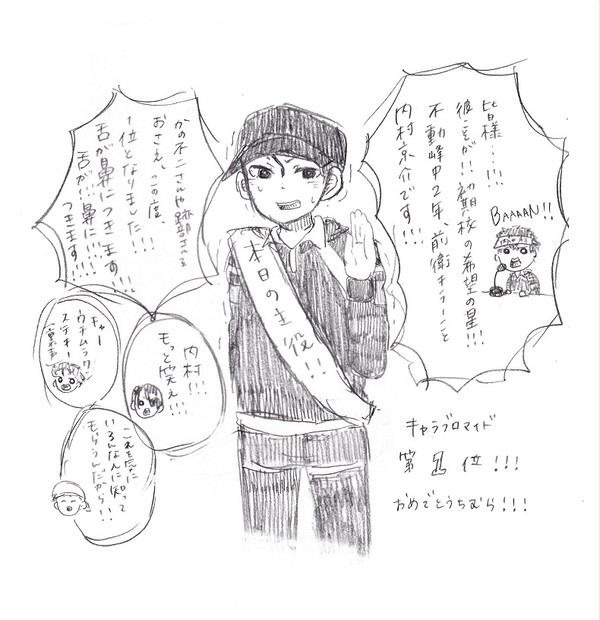 皆様…!!!
彼こそが!!初期校の希望の星!!!
不動峰中2年前衛キラーこと
内村京介です!!!
BAAAAN!!
かの不二さんや跡部さんを
おさえ、この度、
1位となりました!!!
舌が鼻につきます!!!
舌が!!!鼻に!!!
つきます!!!
本日の主役!!
キャー
ウチムラクーン
ステキー
(裏声)
内村!!!
もっと笑え!!!
これを機に
いろんな人に知って
もらうんだから!!
キャラブロマイド
第1位!!!
おめでとうちむら!!!